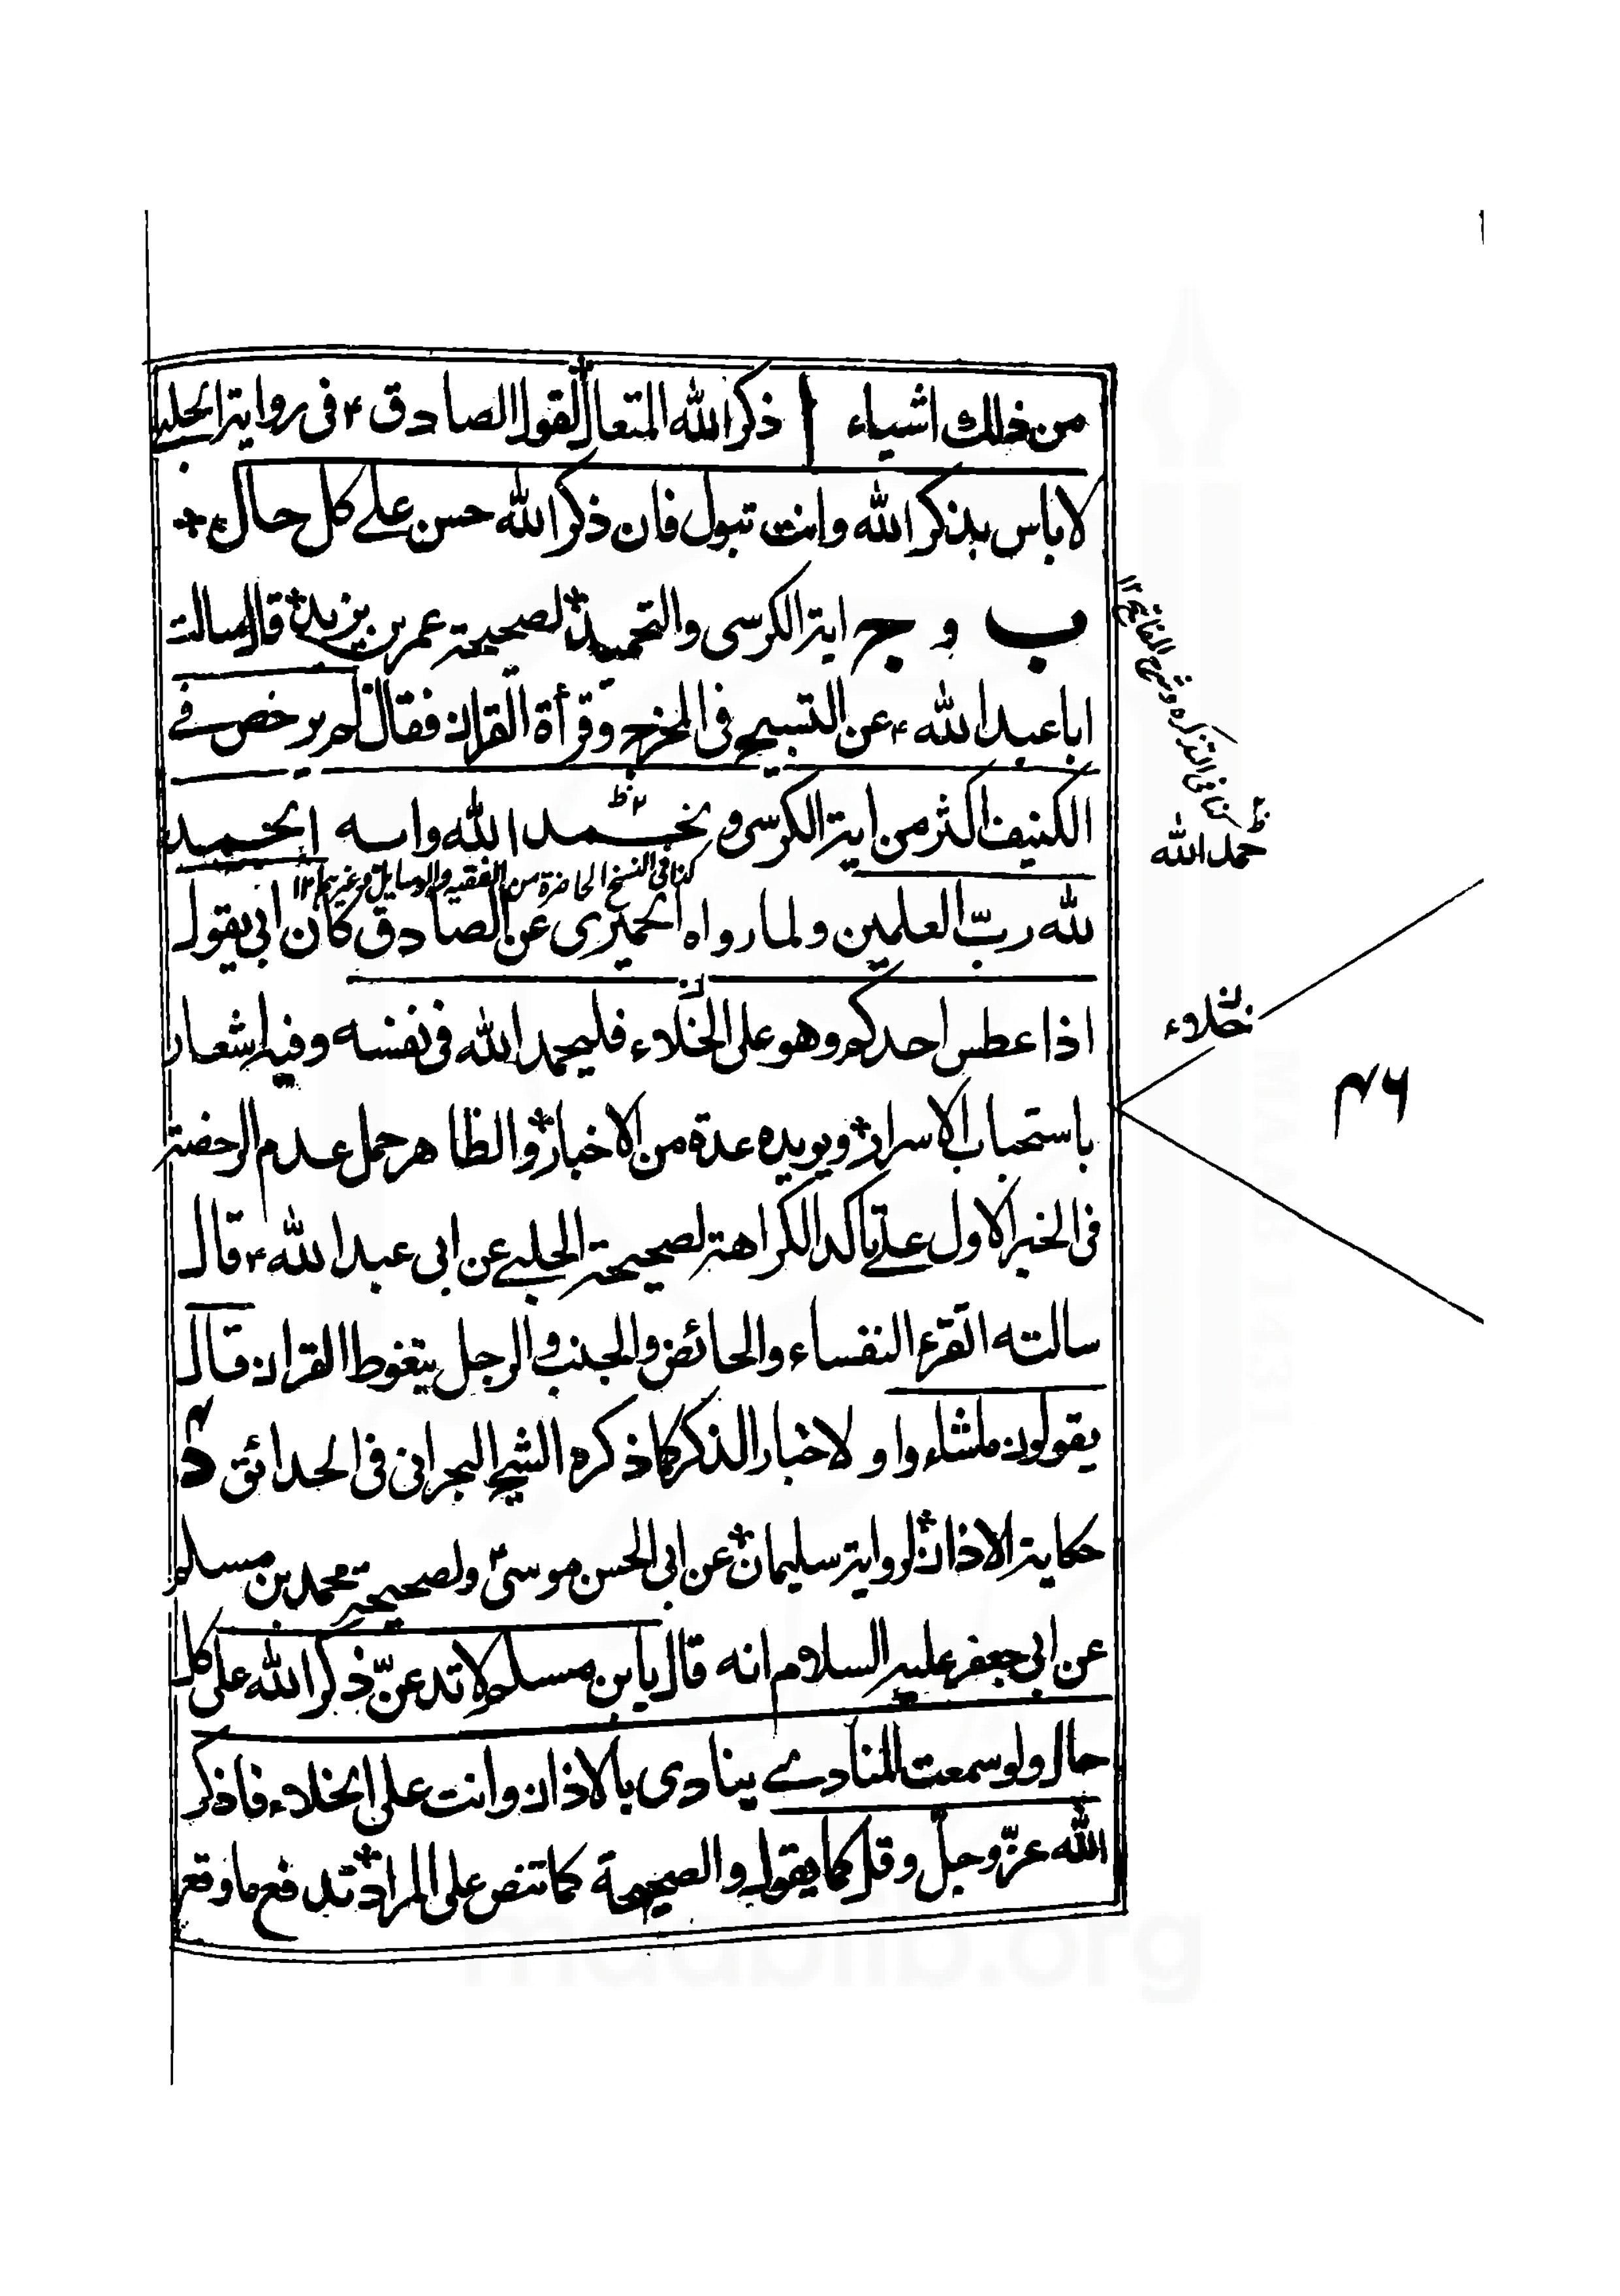 من ذلك اشياء ا ذكر الله المتعال لقول الصادق ۴ فى رواية الحلبے
لا باس بذكر الله وانت تبول فان ذكر الله حسن علے كل حال
ب و ج اية الكرسى والتحميد لصحيحة عمر بن يزيد قال سالت
ابا عبد الله ۴ عن التسبيح فى المخرج وقرأة القران فقال لم يرخص فے
الكنيف اكثر من اية الكرسى و يحمد الله واية الحمد
كذا فى النسخ الحاضرة من الفقيه والوسايل وغيرهما ١٢
لله ربّ العلمين ولما رواه الحميرى عن الصادق كان ابى يقول
اذا عطس احدكم وهو على الخلاء فليحمد الله فى نفسه وفيه اشعار
باستحباب الاسرار ويويده عدة من الاخبار والظاهر حمل عدم الرخصة
فى الخبر الاول علے تاكد الكراهة لصحيحة الحلبے عن ابى عبد الله ۴ قال
سالته اتقرء النفساء والحائض والجنب والرجل يتغوط القران قال
يقولون ماشاء وا و لاخبار الذكر كما ذكره الشيخ البحرانى فى الحدائق د
حكاية الاذان لرواية سليمان عن ابى الحسن موسى ۴ ولصحيحة محمد بن مسلم
عن ابى جعفر عليه السلام انه قال يابن مسلم لا تدعنّ ذكر الله على كل
حال ولو سمعت المنادے ينادى بالاذان وانت على الخلاء فاذكر
الله عزّ وجلّ وقل كما يقول والصحيحة كما تنص على المراد تدفع ما وقع
كذا فى التذكره وشرح المفاتيح ١٢
حمد الله
خلاء
۴۶
maablib.org
MAAB 1431